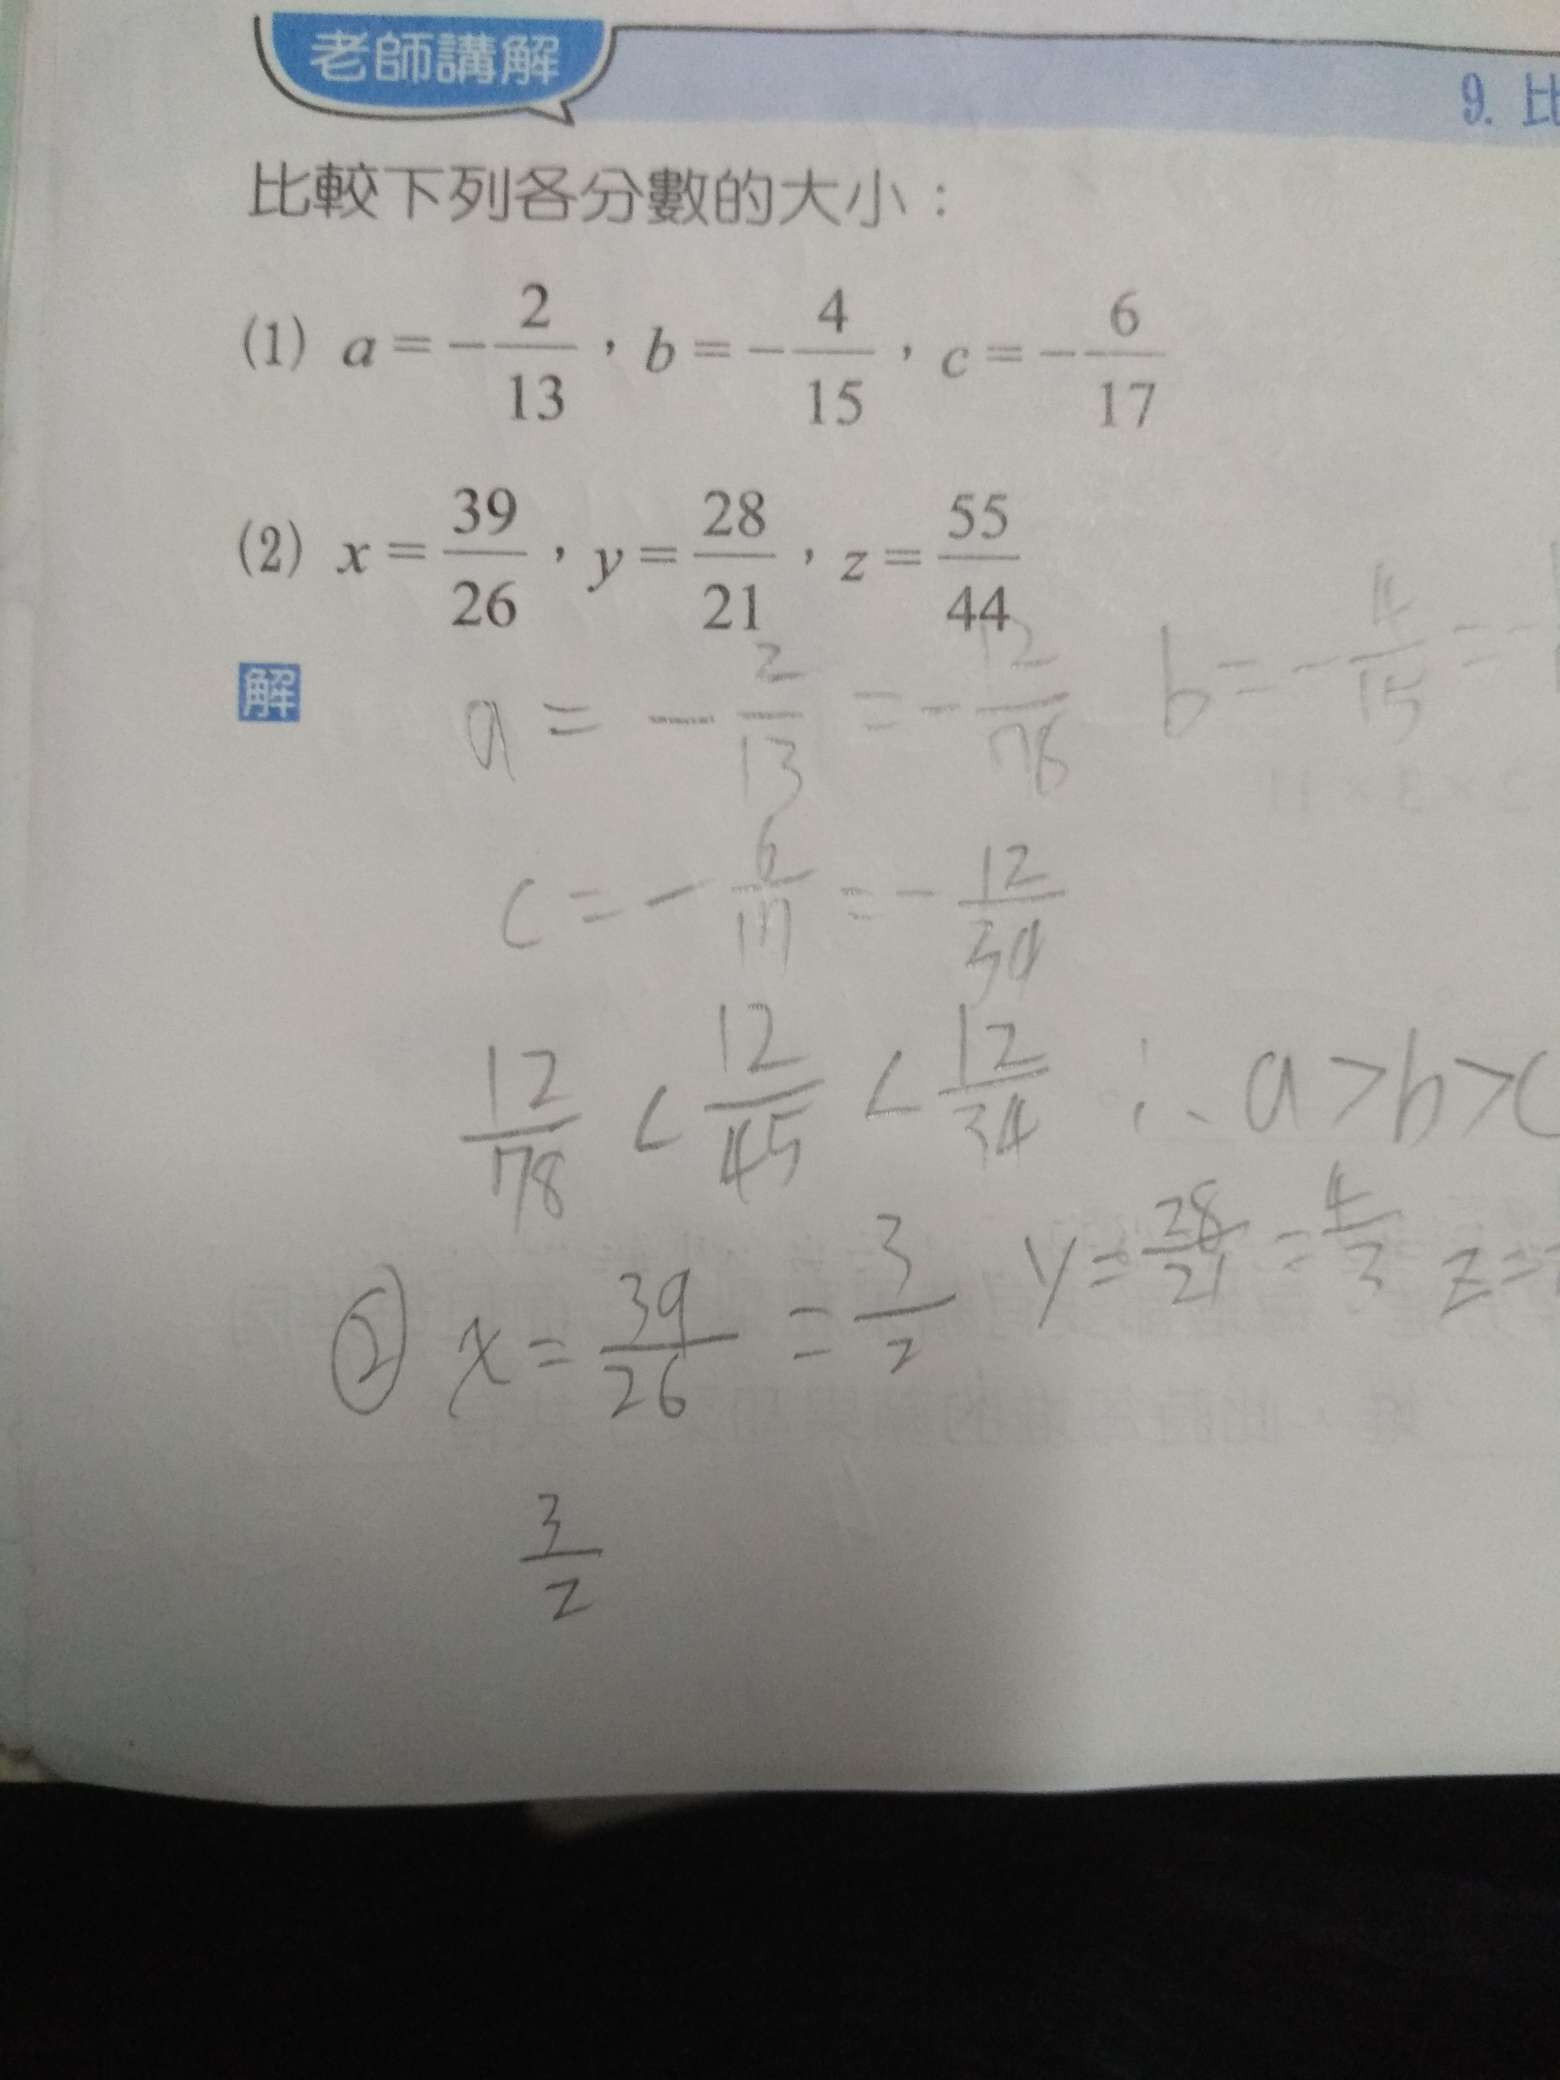 老師講解
9. 比
比較下列各分數的大小：
(1) a=-2/13，b=-4/15，c=-6/17
(2) x=39/26，y=28/21，z=55/44
解
a = -2/13 = -12/78 b = -4/15 = -
c = -6/17 = -12/34
12/78 < 12/45 < 12/34 ∴ a>b>c
② x = 39/26 = 3/2 y = 28/21 = 4/3 z =
3/2